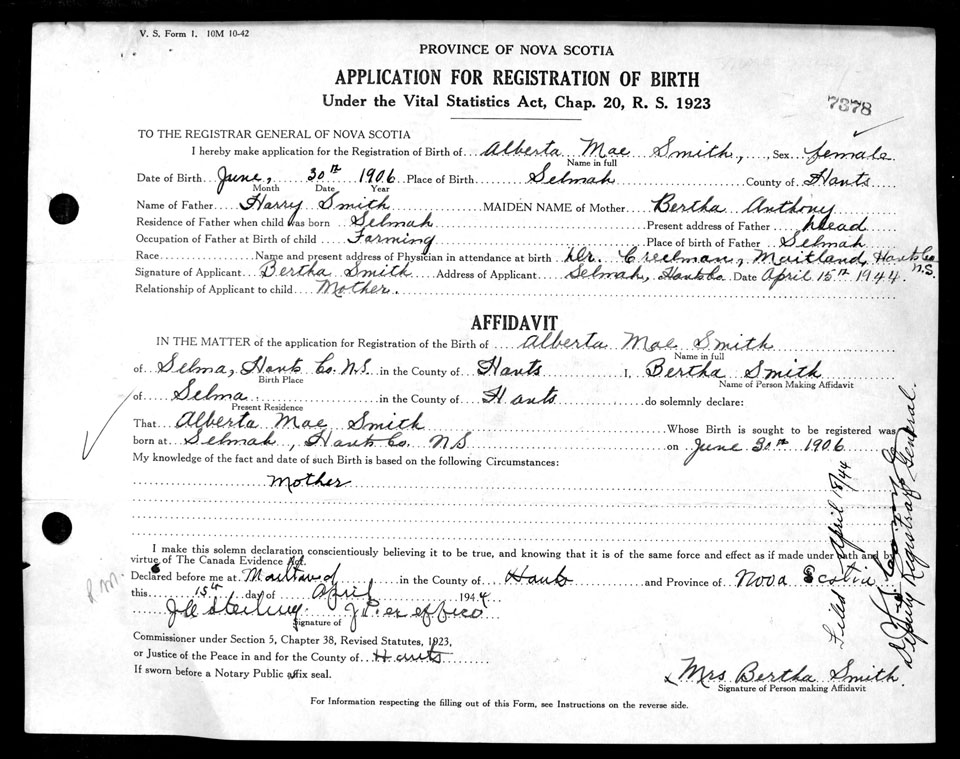 V. S. Form 1. 10M 10-42
PROVINCE OF NOVA SCOTIA
APPLICATION FOR REGISTRATION OF BIRTH
Under the Vital Statistics Act, Chap. 20, R. S. 1923
7378
TO THE REGISTRAR GENERAL OF NOVA SCOTIA
I hereby make application for the Registration of Birth of Alberta Mae Smith, Sex female
Name in full
Date of Birth June, 30th 1906 Place of Birth Selmah County of Hants
Month Date Year
Name of Father Harry Smith MAIDEN NAME of Mother Bertha Anthony
Residence of Father when child was born Selmah Present address of Father Dead
Occupation of Father at Birth of child Farming Place of birth of Father Selmah
Race Name and present address of Physician in attendance at birth Dr. Creelman, Maitland, Hants Co N.S.
Signature of Applicant Bertha Smith Address of Applicant Selmah, Hants Co. Date April 15th 1944.
Relationship of Applicant to child Mother.
AFFIDAVIT
IN THE MATTER of the application for Registration of the Birth of Alberta Mae Smith
Name in full
of Selma, Hants Co. N.S. in the County of Hants I, Bertha Smith
Birth Place Name of Person Making Affidavit
of Selma in the County of Hants do solemnly declare:
Present Residence
That Alberta Mae Smith Whose Birth is sought to be registered was
born at Selmah, Hants Co. N S on June 30th 1906
My knowledge of the fact and date of such Birth is based on the following Circumstances:
Mother
I make this solemn declaration conscientiously believing it to be true, and knowing that it is of the same force and effect as if made under oath and by
virtue of The Canada Evidence Act.
Declared before me at Maitland in the County of Hants and Province of Nova Scotia
this 15th day of April 1944
Signature of
Commissioner under Section 5, Chapter 38, Revised Statutes, 1923,
or Justice of the Peace in and for the County of Hants
If sworn before a Notary Public affix seal.
Mrs Bertha Smith
Signature of Person making Affidavit
For Information respecting the filling out of this Form, see Instructions on the reverse side.
P.M.
Filed April 18/44
Deputy Registrar General